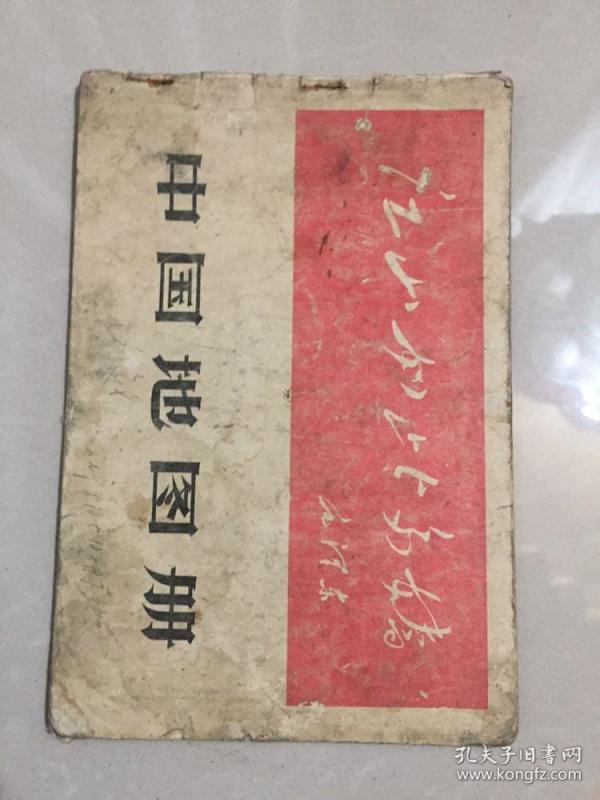 江山如此多嬌
毛泽东
中国地图册
孔夫子旧書网
www.kongfz.com